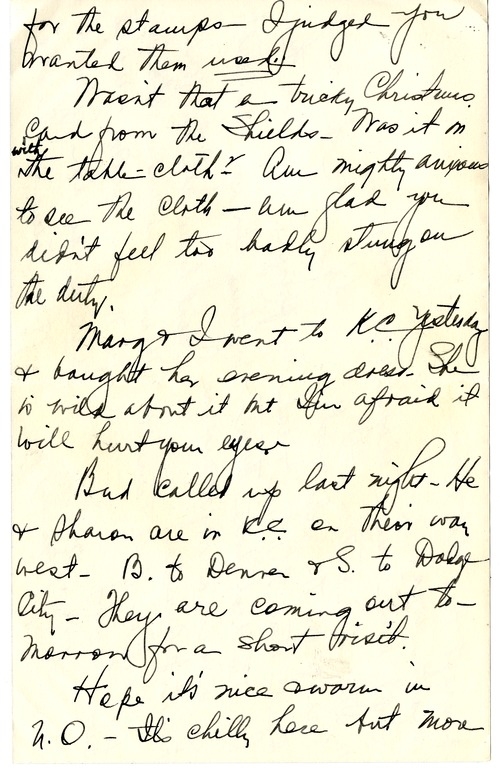 for the stamps - I judged you
wanted them used.
Wasn't that a tricky Christmas
Card from the Shields - Was it in
with
the table-cloth? Am mighty anxious
to see the cloth - am glad you
didn't feel too badly stung on
the duty.
Marg & I went to K.C. yesterday
& bought her evening dress. She
is wild about it but I'm afraid it
will hurt your eyes.
Bud called up last night - He
& Sharon are in K.C. on their way
west - B. to Denver & S. to Dodge
City - They are coming out to-
morrow for a short visit.
Hope it's nice & warm in
N.O. - It's chilly here but more